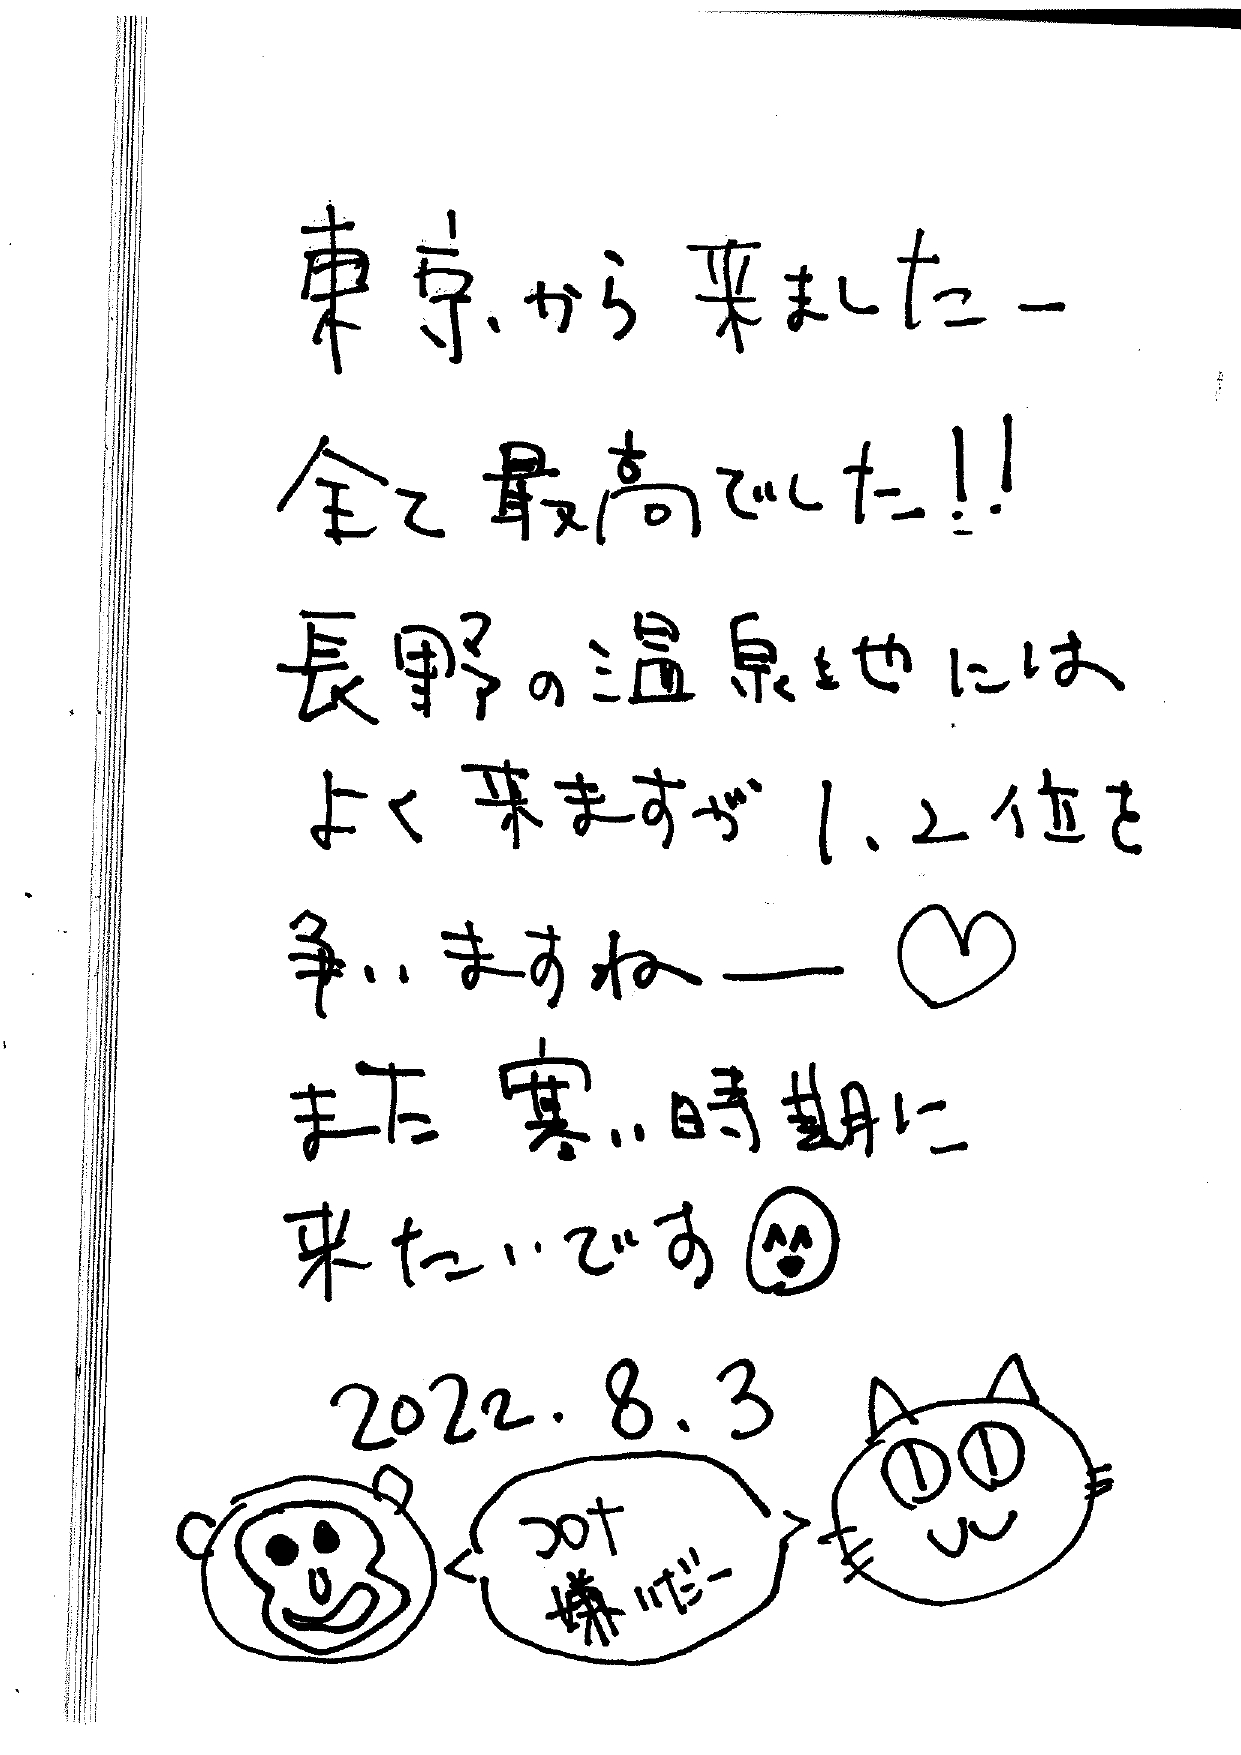 東京から来ましたー
全て最高でした!!
長野の温泉地には
よく来ますが1、2位を
争いますねー♡
また寒い時期に
来たいです
2022.8.3
コロナ
嫌いだー